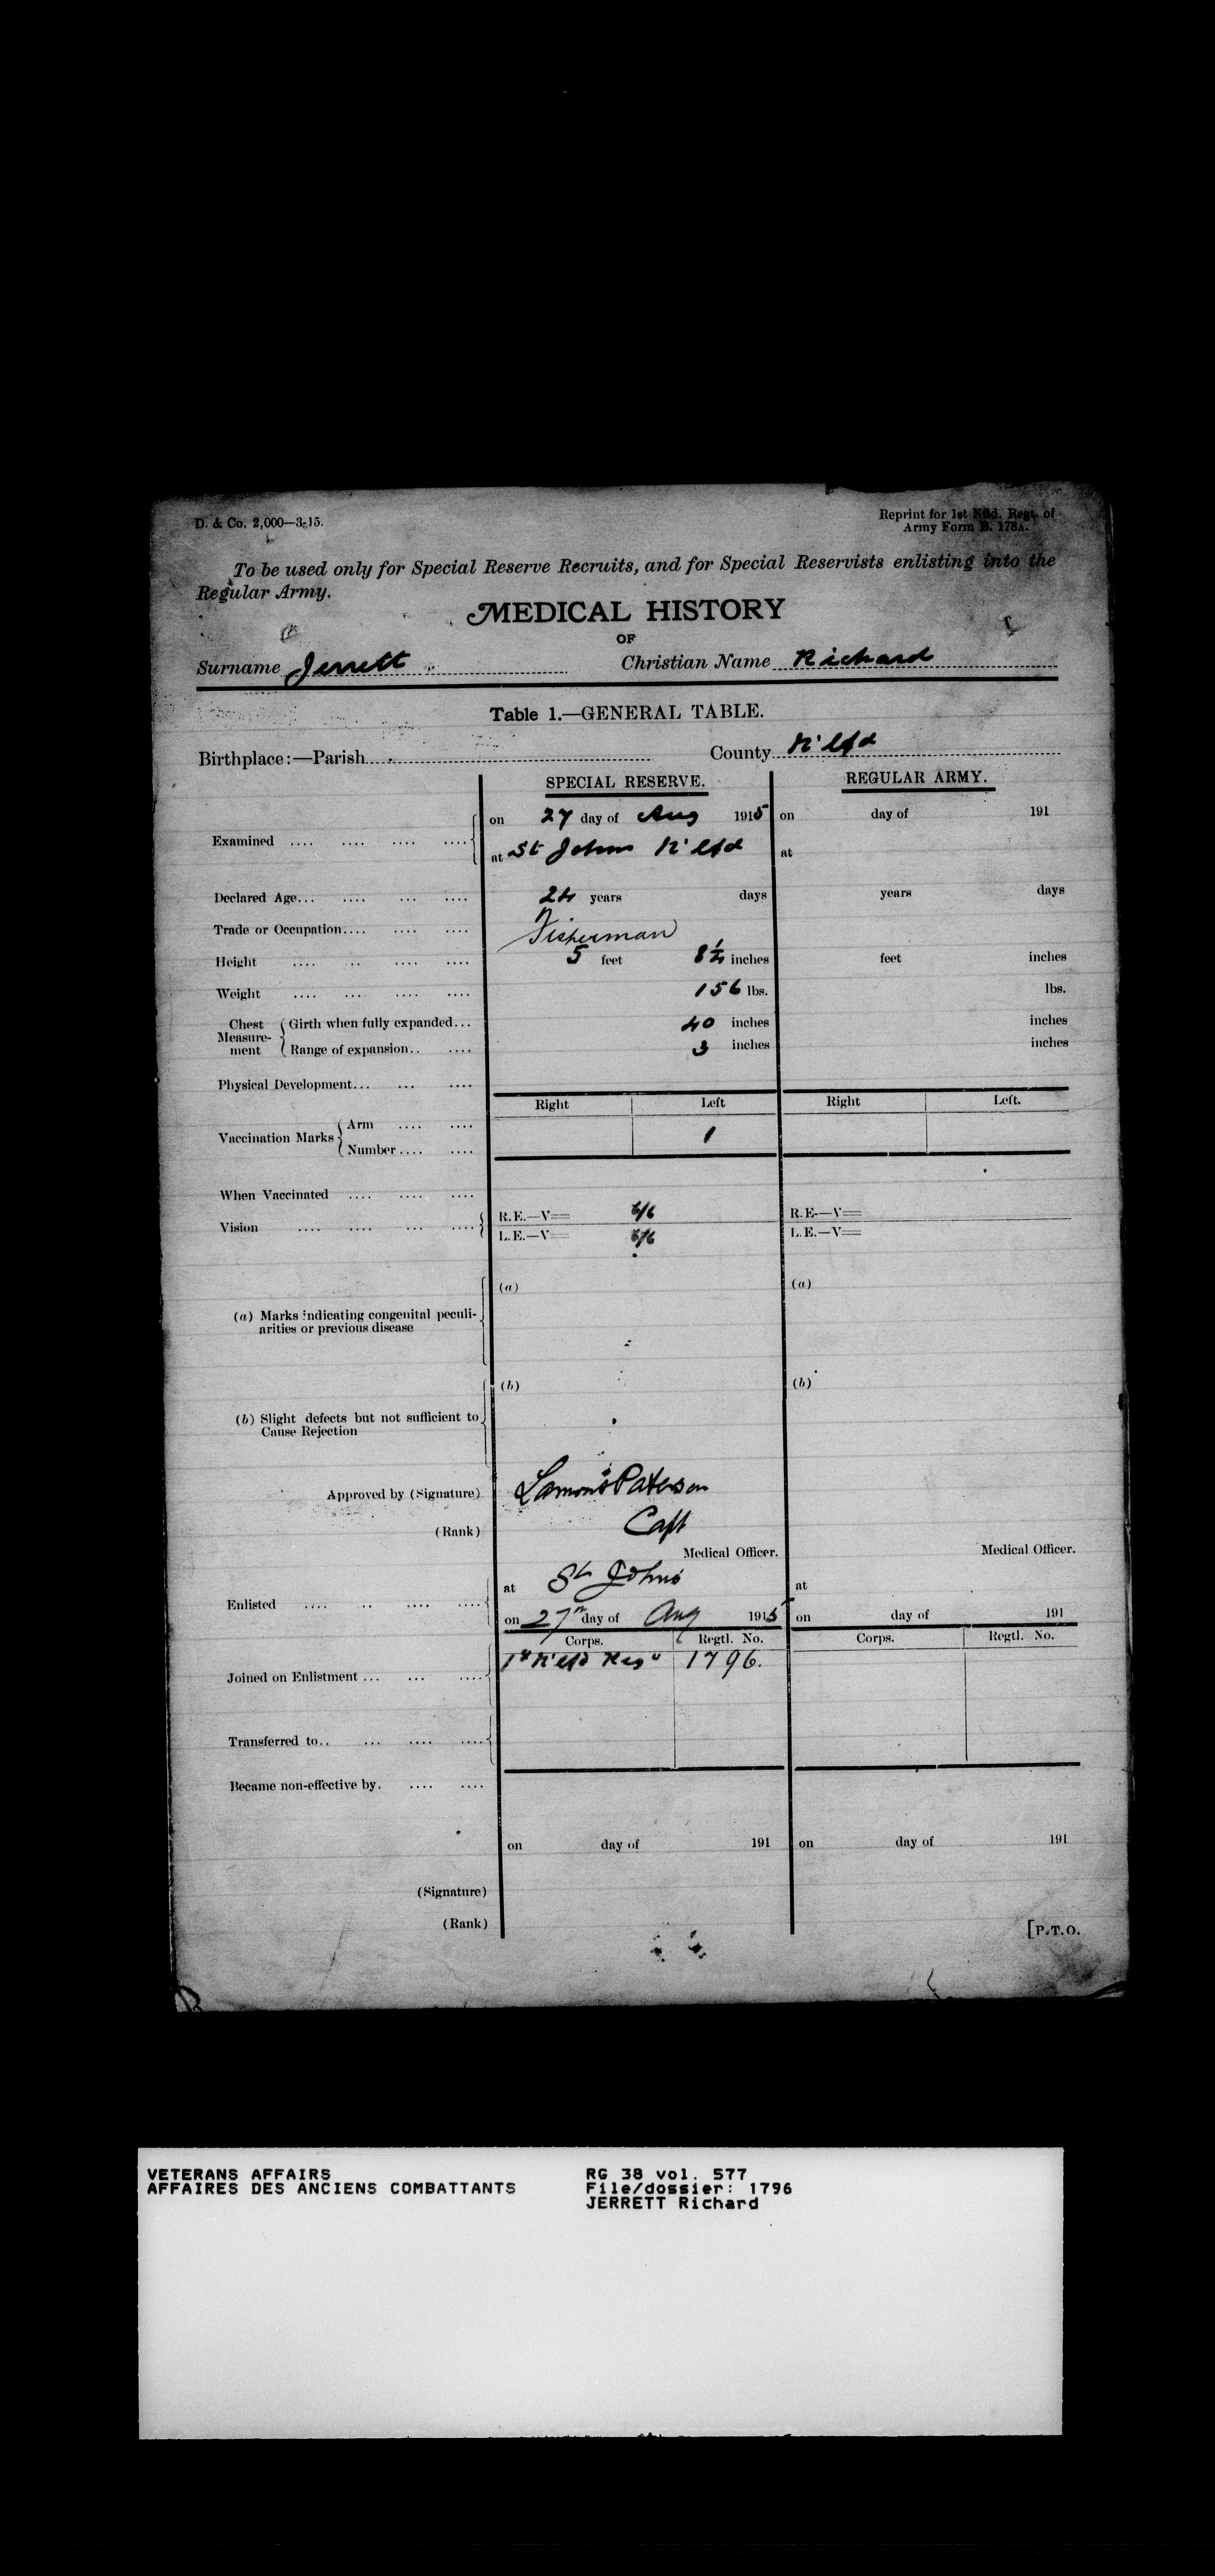 D. & Co. 2,000—3-15.
Reprint for 1st Nfld. Regt. of
Army Form B. 178A.
To be used only for Special Reserve Recruits, and for Special Reservists enlisting into the
Regular Army.
MEDICAL HISTORY
OF
Surname Jerrett Christian Name Richard
Table 1.—GENERAL TABLE.
Birthplace:—Parish County N'lfd
SPECIAL RESERVE. REGULAR ARMY.
Examined .... .... .... .... on 27 day of Aug 1915 on day of 191
at St Johns N'lfd at
Declared Age... .... ... .... 24 years days years days
Trade or Occupation.... .... .... Fisherman
Height .... .. .... .... 5 feet 8 1/2 inches feet inches
Weight .... ... .... .... 156 lbs. lbs.
Chest Measure-ment Girth when fully expanded... 40 inches inches
Range of expansion.. .... 3 inches inches
Physical Development... ... ....
Right Left Right Left.
Vaccination Marks Arm .... .... 1
Number .... ....
When Vaccinated .... .... ....
Vision .... .... ... .... R.E.—V= 6/6 R.E.—V=
L.E.—V= 6/6 L.E.—V=
(a) Marks indicating congenital peculi- (a) (a)
arities or previous disease
(b) Slight defects but not sufficient to (b) (b)
Cause Rejection
Approved by (Signature) Paterson
(Rank) Capt
Medical Officer. Medical Officer.
Enlisted .... .. .... .... at St Johns at
on 27th day of Aug 1915 on day of 191
Corps. Regtl. No. Corps. Regtl. No.
Joined on Enlistment ... ... .... 1st N'lfd Reg 1796.
Transferred to.. ... .... ....
Became non-effective by. .... ....
on day of 191 on day of 191
(Signature)
(Rank)
[P.T.O.
VETERANS AFFAIRS RG 38 vol. 577
AFFAIRES DES ANCIENS COMBATTANTS File/dossier: 1796
JERRETT Richard